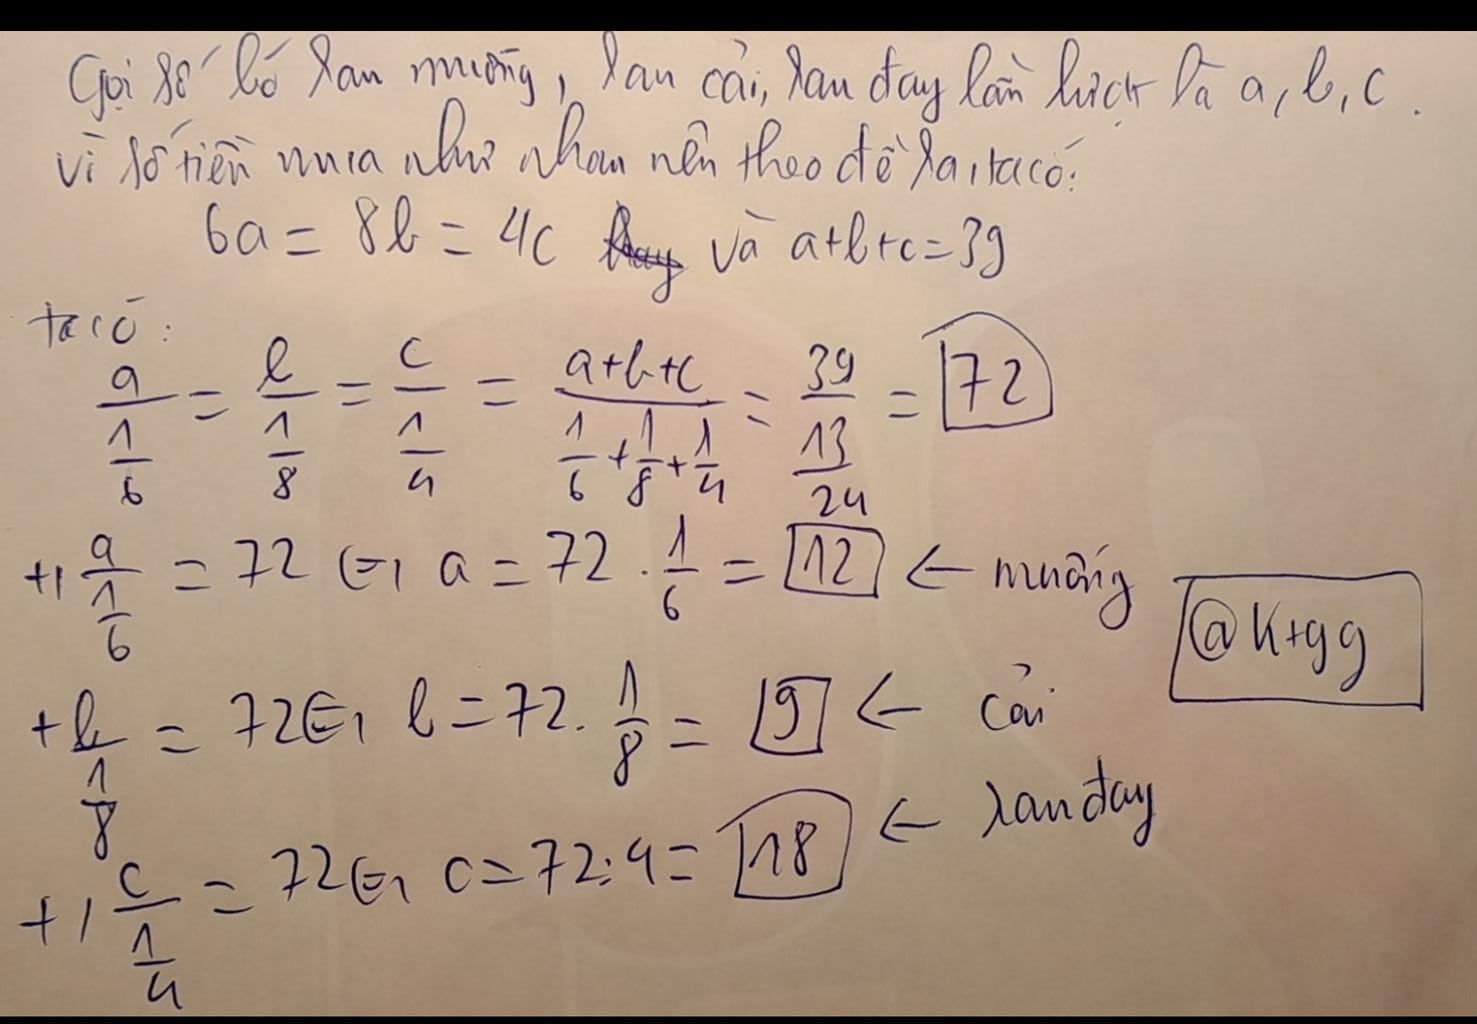 Gọi số bó rau muống, rau cải, rau đay lần lượt là a, b, c.
vì số tiền mua như nhau nên theo đề ra, ta có:
6a = 8b = 4c và a+b+c=39
ta có:
a/(1/6) = b/(1/8) = c/(1/4) = (a+b+c)/(1/6+1/8+1/4) = 39/(13/24) = 72
+) a/(1/6) = 72 (=) a = 72 . 1/6 = 12 ← muống
@k+gg
+ b/(1/8) = 72 (=) b = 72 . 1/8 = 9 ← cải
+) c/(1/4) = 72 (=) c = 72:4 = 18 ← rau đay